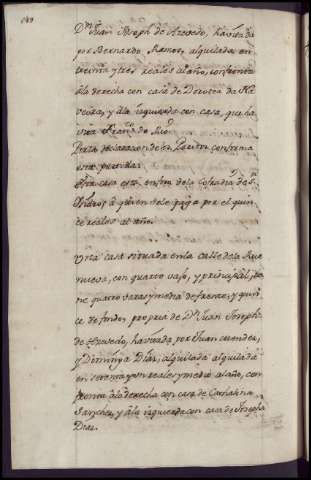 Dn. Juan Joseph de Azevedo, havitada
por Bernardo Ramos, alquilada en
treinta y tres reales al año, confronta
a la derecha con casa de Dorotea da
y a la izquierda con casa, que ha
Franco. de
Por la declaracion de los Peritos confirma
esta partida
Otra casa esta enfrente de la Cofradia de
á quien se le paga por el
ce reales al año.
Una casa situada en la calle de la Rua
nueva, con quarto vajo, y principal, tie
ne quatro varas y media de frente, y quin
ce de fondo, propria de Dn. Juan Joseph
de Azevedo, havitada por Juan Mendez,
y Dominga Diaz, alquilada alquilada
en setenta y un reales y medio al año, con
fronta a la derecha con casa de Cathalina
Sanchez, y a la izquierda con casa de Josepha
Diaz.